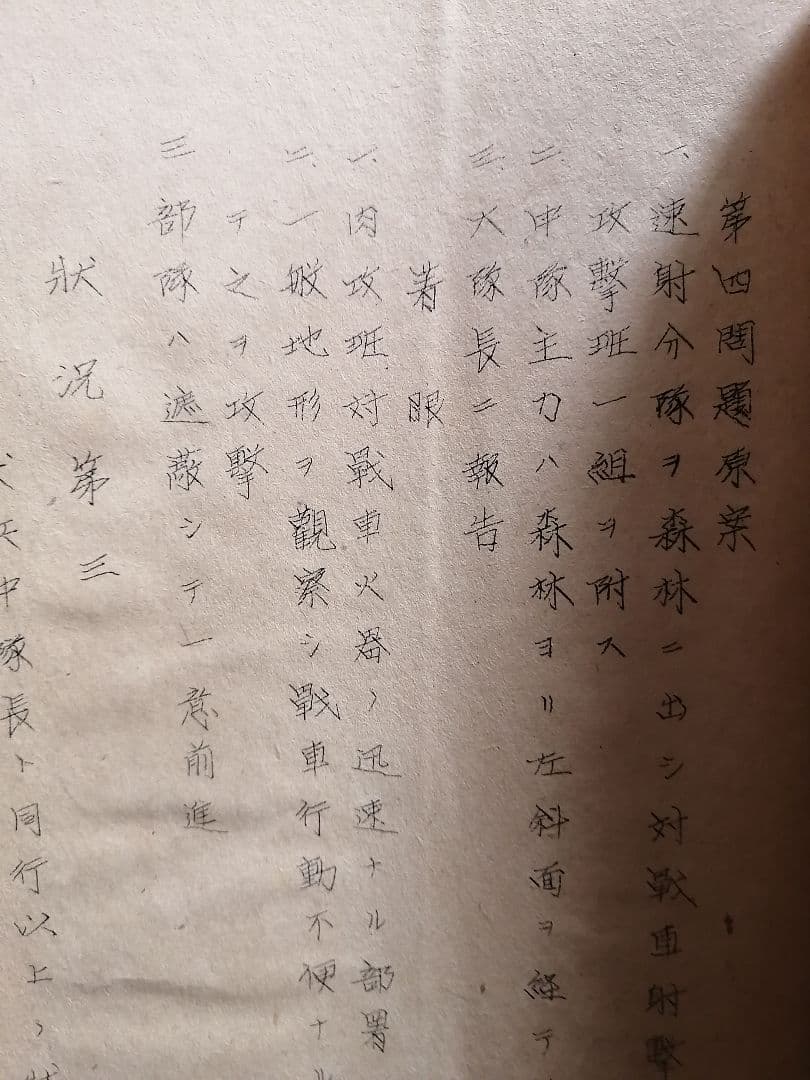 第四問題原案
一、速射分隊ヲ森林ニ出シ対戰車射撃
攻撃班一組ヲ附ス
二、中隊主力ハ森林ヨリ左斜面ヲ経テ
三、大隊長ニ報告
着眼
一、肉攻班対戰車火器ノ迅速ナル部署
二、一般地形ヲ觀察シ戰車行動不便ナル
テ之ヲ攻撃
三 部隊ハ遮蔽シテ一意前進
狀況第三
中隊長ト同行以上ノ狀